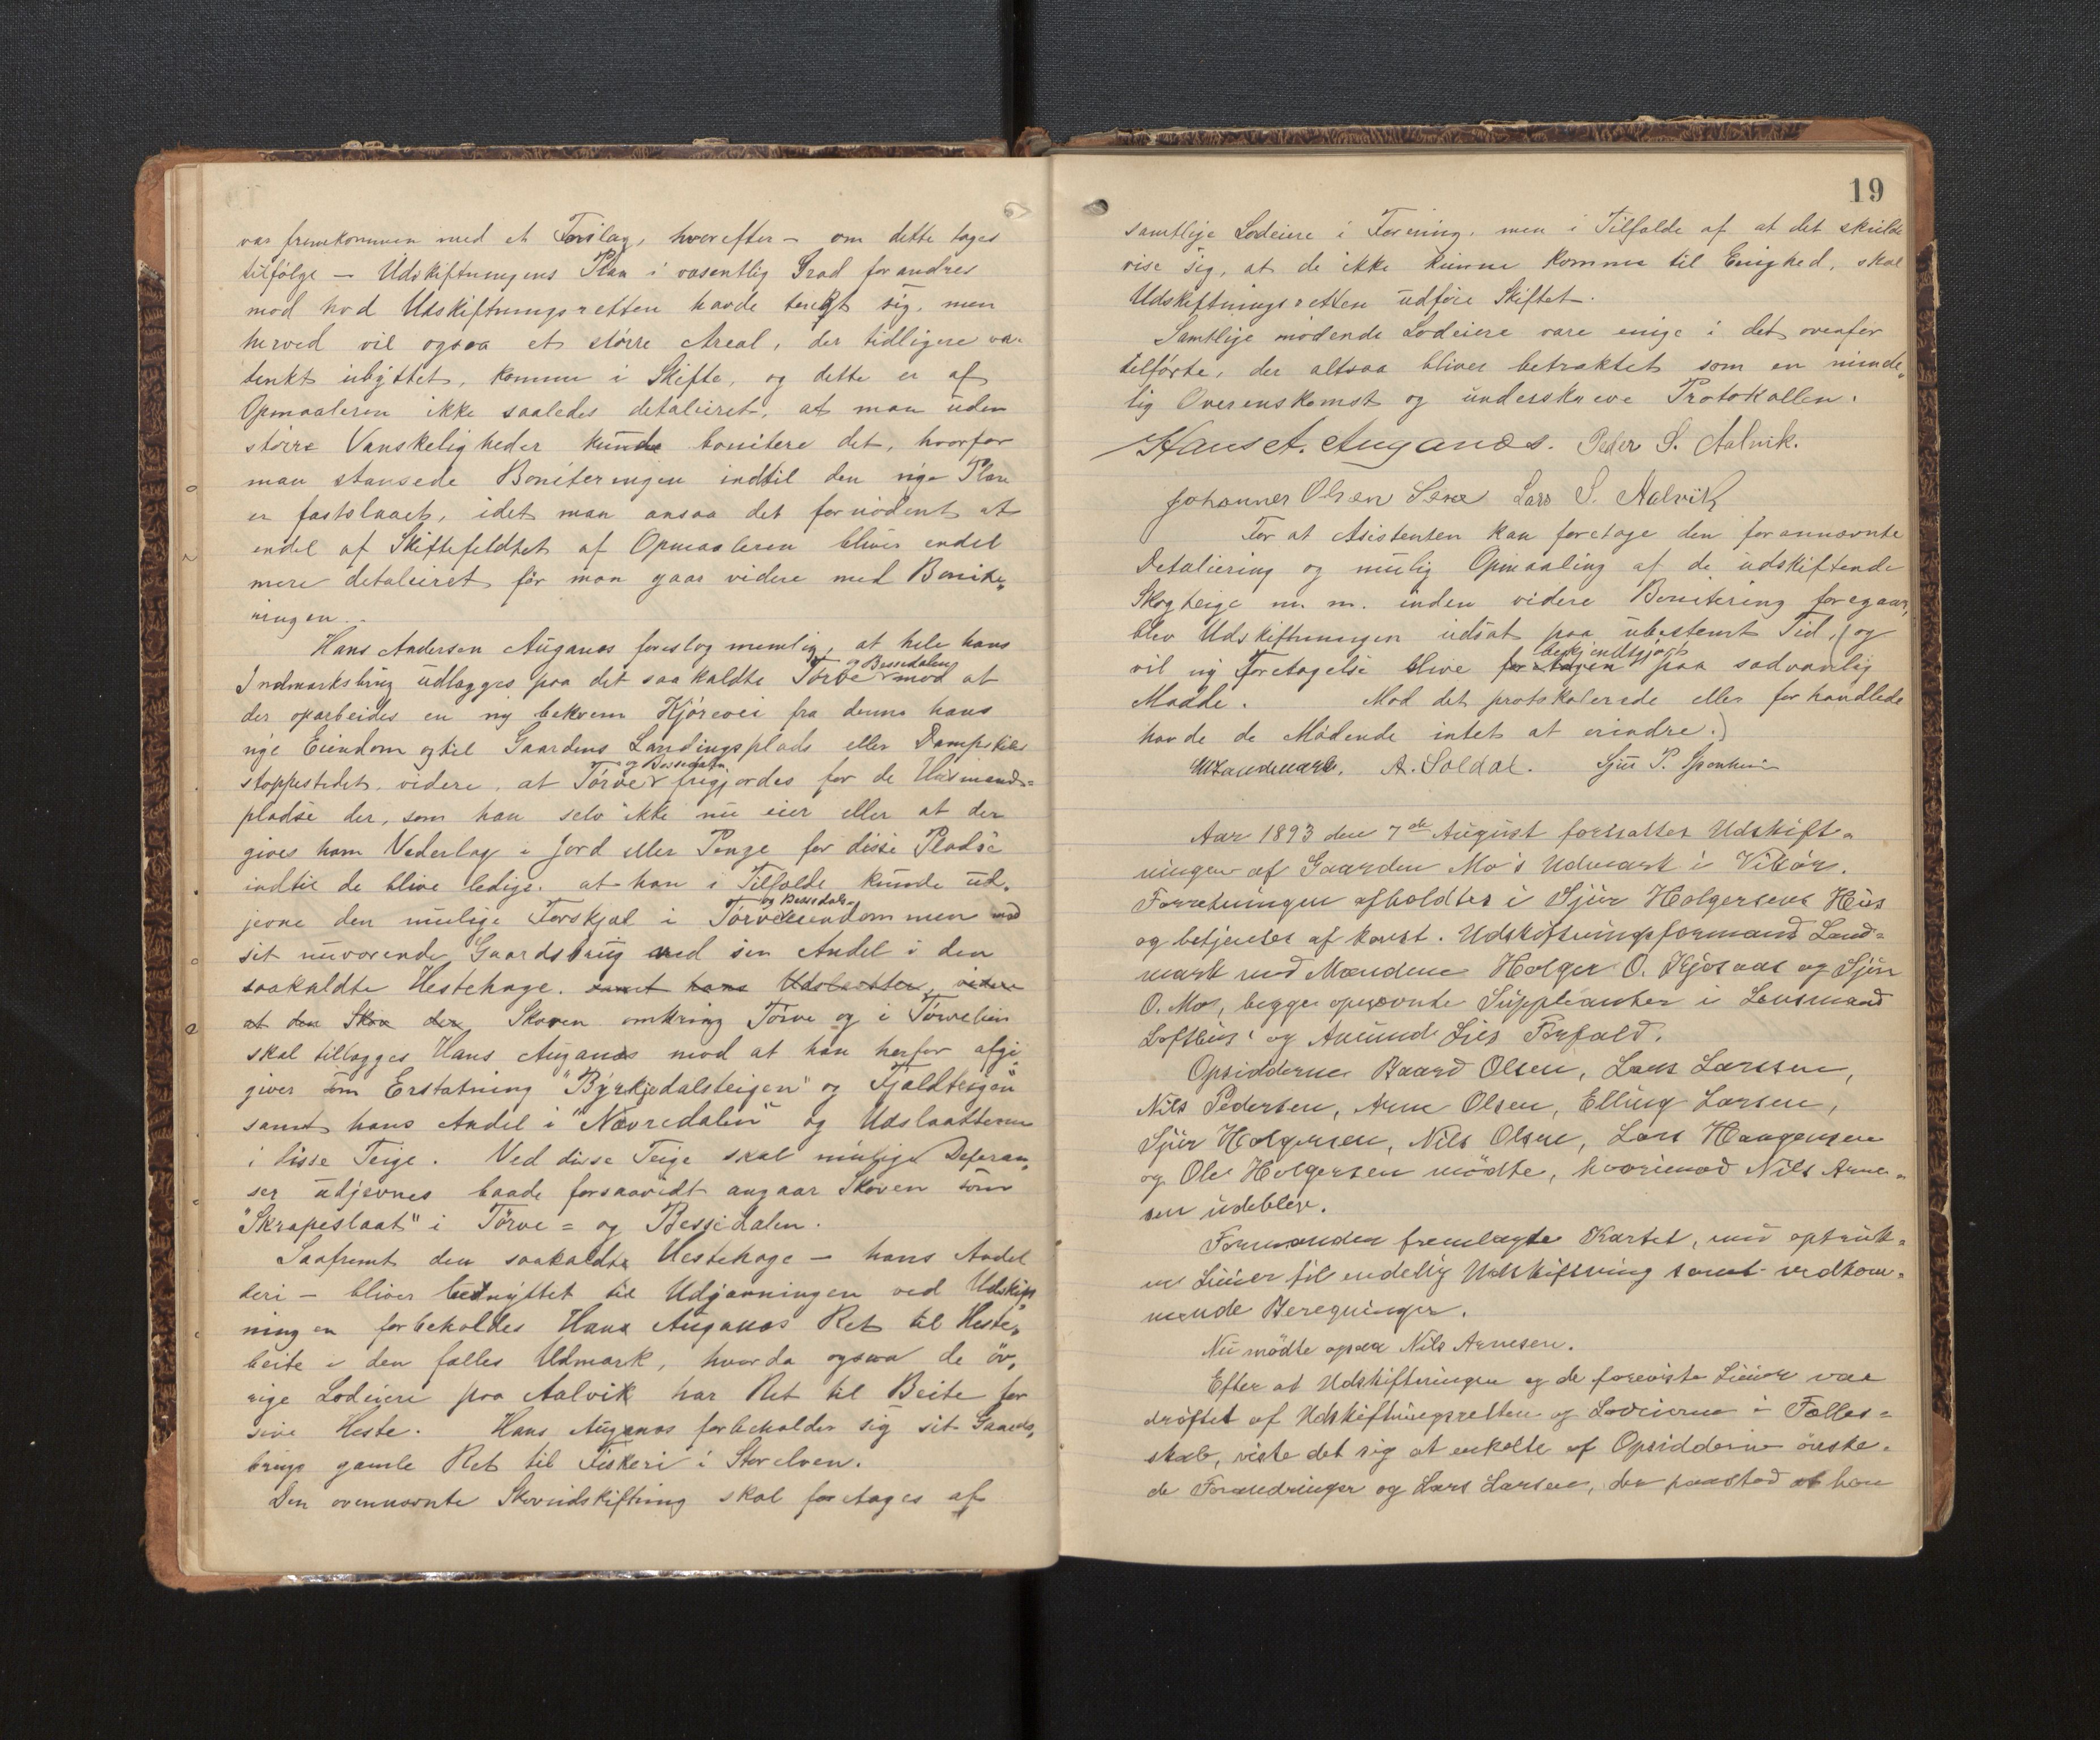 var fremkommen med et Forslag, hvorefter – om dette tages
tilfølge – Udskiftningens Plan i væsentlig Grad forandres
mod hvad Udskiftningsretten havde tenkt sig, men
herved vil ogsaa et större Areal, der tidligere var
tenkt ubyttet, komme i Skifte, og dette er af
Opmaaleren ikke saaledes detaleiret, at man uden
större Vanskeligheder kunde bonitere det, hvorfor
man stansede Boniteringen indtil den nye Plan
er fastslaaet, idet man ansaa det fornödent at
endel af Skiftefeldtet af Opmaaleren bliver endel
mere detaleiret för man gaar videre med Bonite„
ringen.
Hans Andersen Auganæs foreslog nemlig, at hele hans
Indmarksbrug udlægges paa det saakaldte Törve og Bessedalen mod at
der oparbeides en ny bekvem Kjörevei fra denne hans
nye Eiendom og til Gaardens Landingsplads eller Dampskibs
stoppestedet, videre, at Törve og Bessedalen frigjordes for de Husmands=
pladse der, som han selv ikke nu eier eller at der
gives ham Vederlag i Jord eller Penge for disse Pladse
indtil de blive ledige, at han i Tilfælde kunde ud„
jevne den mulige Forskjel i Törve og Bessedals eiendommen med
sit nuværende Gaardsbrug med sin Andel i den
saakaldte Hestehage. samt hans Udslaatter, videre
at den Skov der Skoven omkring Törve og i Törvelien
skal tillægges Hans Auganæs mod at han herfor afgi
giver som Erstatning "Byrkjedalsteigen" og Fjeldteigen
samt hans Andel i "Nævredalen" og Udslaatterne
i disse Teige. Ved disse Teige skal mulige Deferan„
ser udjevnes baade forsaavidt angaar Skoven som
"Skrapeslaat" i Törve= og Bessedalen.
Saafremt den saakaldte Hestehage – hans Andel
deri – bliver benyttet til Udjævningen ved Udskift
ningen forbeholdes Hans Auganæs Ret til Heste„
beite i den fælles Udmark, hvor da ogsaa de öv„
rige Lodeiere paa Aalvik har Ret til Beite for
sine Heste. Hans Auganæs forbeholder sig sit Gaards„
brugs gamle Ret til Fiskeri i Storelven.
Den ovennævnte Skovudskiftning skal foretages af
19
samtlige Lodeiere i Forening, men i Tilfælde af at det skulde
vise sig, at de ikke kunne komme til Enighed, skal
Udskiftningsretten udføre Skiftet.
Samtlige mödende Lodeiere vare enige i det ovenfor
tilførte, der altsaa bliver betraktet som en minde„
lig Overenskomst og underskreve Protokollen.
Hans A. Auganæs. Peder S. Aalvik.
Johannes Olsen Lars S. Aalvik
For at Asistenten kan foretage den forannævnte
Detaliering og mulig Opmaaling af de udskiftende
Skogteige m. m. inden videre Bonitering foregaar,
blev Udskiftningen udsat paa ubestemt Tid, (og
vil ny Foretagelse blive foretagen bekjendtgjort paa sædvanlig
Maade. Mod det protokolerede eller forhandlede
havde de Mödende intet at erindre.)
Landmark. A. Soldal. Sjur P. Sponheim
Aar 1893 den 7de August fortsattes Udskift=
ningen af Gaarden Mo's Udmark i Vikör.
Forretningen afholdtes i Sjur Holgersens Hus
og betjentes af konst. Udskiftningsformand Land=
mark med Mændene Holger O. Kjosaas og Sjur
O. Mo, begge opnævnte Suppleanter i Lensmand
Lofthus' og Amund Lies Forfald.
Opsidderne Baard Olsen, Lars Larsen,
Nils Pedersen, Arne Olsen, Elling Larsen,
Sjur Holgersen, Nils Olsen, Lars Haugensen
og Ole Holgersen mödte, hvorimod Nils Arne=
sen udeblev.
Formanden fremlagte Kartet, med optruk=
ne Linier til endelig Udskiftning samt vedkom=
mende Beregninger.
Nu mödte ogsaa Nils Arnesen.
Efter at Udskiftningen og de foreviste Linier var
dröftet af Udskiftningsretten og Lodeierne i Fælles=
skab, viste det sig at enkelte af Opsidderne önske=
de Forandringer og Lars Larsen, der paastod at han